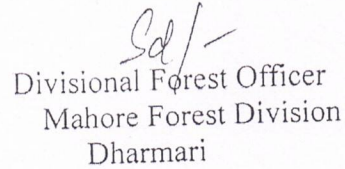 Sd/-
Divisional Forest Officer
Mahore Forest Division
Dharmari